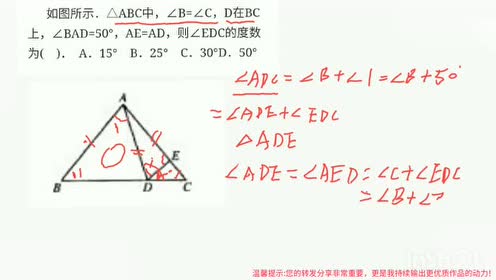 如图所示．△ABC中，∠B=∠C，D在BC
上，∠BAD=50°，AE=AD，则∠EDC的度数
为(　)．A．15°　B．25°　C．30°D．50°
∠ADC=∠B+∠1=∠B+50°
=∠ADE+∠EDC
△ADE
∠ADE=∠AED=∠C+∠EDC
=∠B+∠
A
1
E
B
D
C
温馨提示:您的转发分享非常重要，更是我持续输出更优质作品的动力!